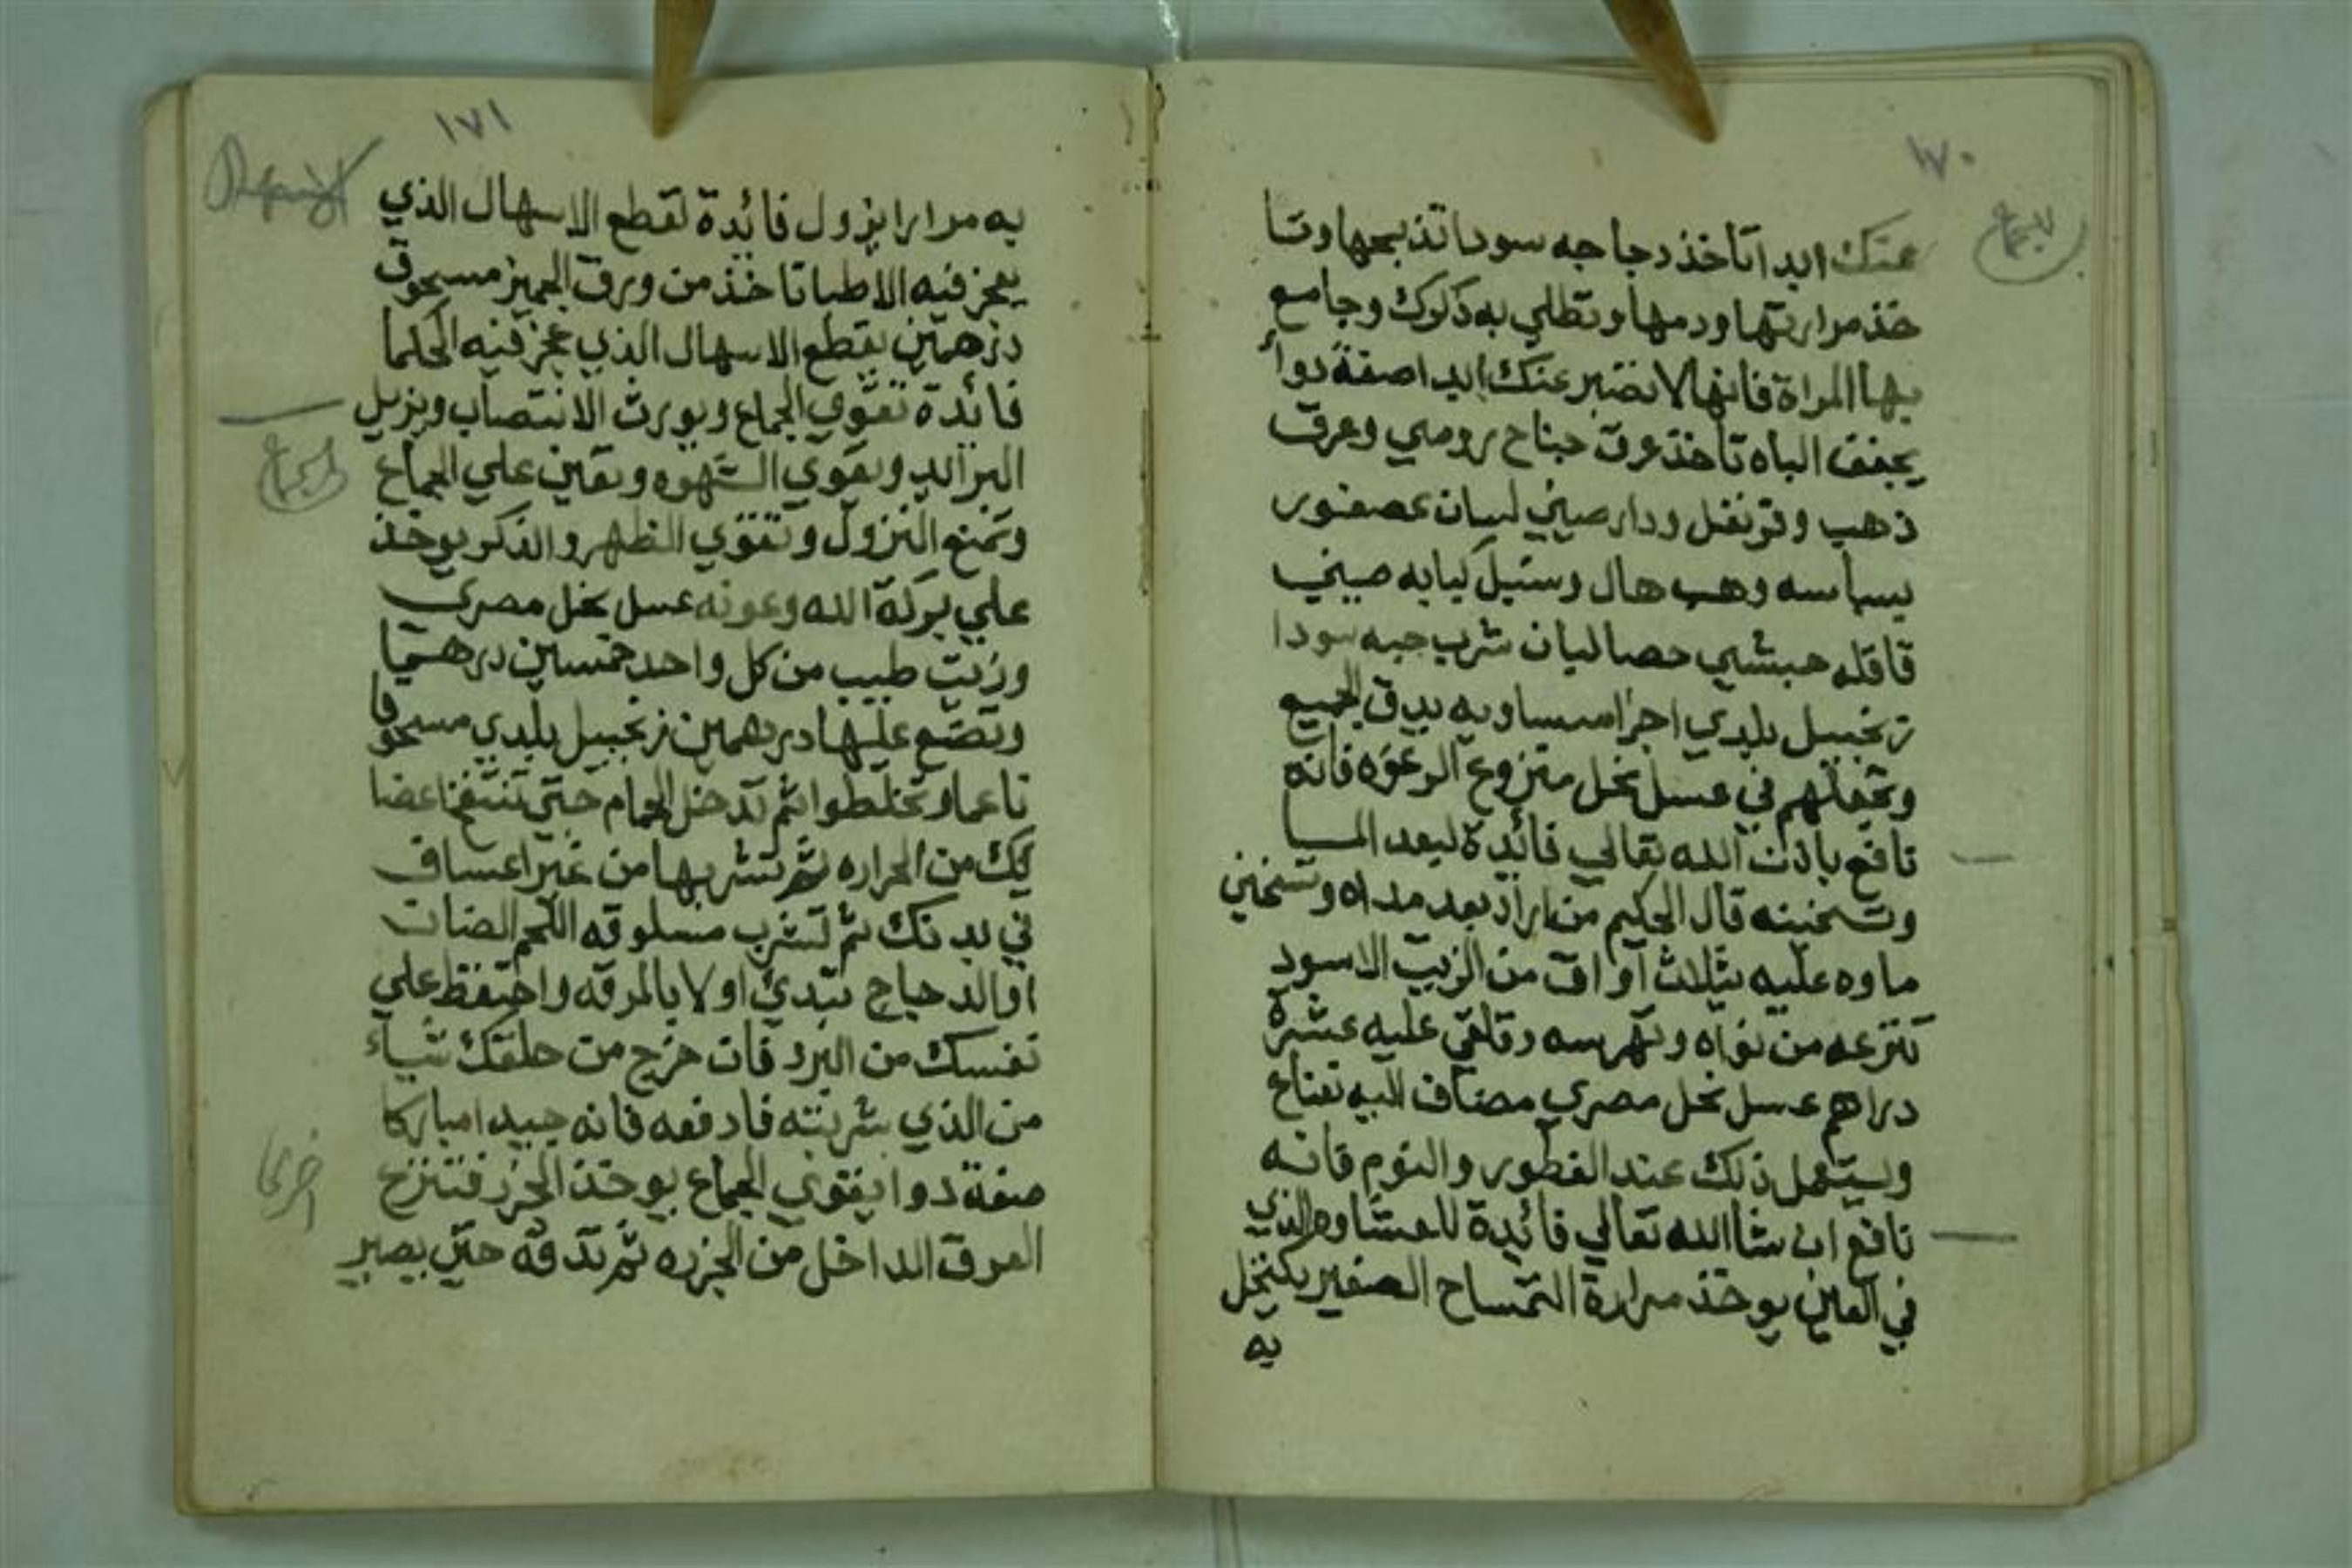 ١٧٠
للجماع
عنك ابدا تاخذ دجاجه سودا تذبحها وتا
خذ مرارتها ودمها وتطلي به ذكرك وجامع
بها المراة فانها لا تصبر عنك ابدا صفة دواء
يجفف الباه تاخذ عرق جناح رومي وعرق
ذهب وقرنفل ودار صيني لسان عصفور
بسباسه وهب هال وسنبل كبابه صيني
قاقله حبشي حصالبان شرب حبه سودا
زنجبيل بلدي اجزا متساويه يدق الجميع
وتجعلهم في عسل نحل منزوع الرغوه فانه
نافع باذن الله تعالي فائدة لبعد المسا
وتسخينه قال الحكيم من اراد بعد مداه وتسخين
ماوه عليه بثلاث اواق من الزبيب الاسود
تنزعه من نواه وتهرسه وتلقي عليه عشرة
دراهم عسل نحل مصري مضاف اليه تفاح
ويستعمل ذلك عند الفطور والنوم فانه
نافع ان شا الله تعالي فائدة للغشاوه الذي
في العين يوخذ مرارة التمساح الصغير يكتحل
به
١٧١
به مرارا يزول فائدة لقطع الاسهال الذي
يعجز فيه الاطبا تاخذ من ورق الجميز مسحوق
درهمين يقطع الاسهال الذي عجز فيه الحكما
فائدة تقوي الجماع ويورث الانتصاب ويزيل
البرالد ويقوي الشهوه وتعين علي الجماع
للجماع
وتمنع النزول وتقوي الظهر والذكر يوخذ
علي بركة الله وعونه عسل نحل مصري
وزيت طيب من كل واحد خمسين درهما
وتضع عليها درهمين زنجبيل بلدي مسحوقا
ناعما وتخلطوا ثم تدخل الحمام حتي تنتفخ اعضا
يك من الحراره ثم تشربها من غير اعساف
في بدنك ثم تشرب مسلوقه اللحم الضان
او الدجاج تبدئ اولا بالمرقه واحتفظ علي
نفسك من البرد فان خرج من حلقك شياء
من الذي شربته فادفعه فانه جيدا مباركا
صفة دوا يقوي الجماع يوخذ الجزر فتنزع
العرق الداخل من الجزره ثم تدقه حتي يصير